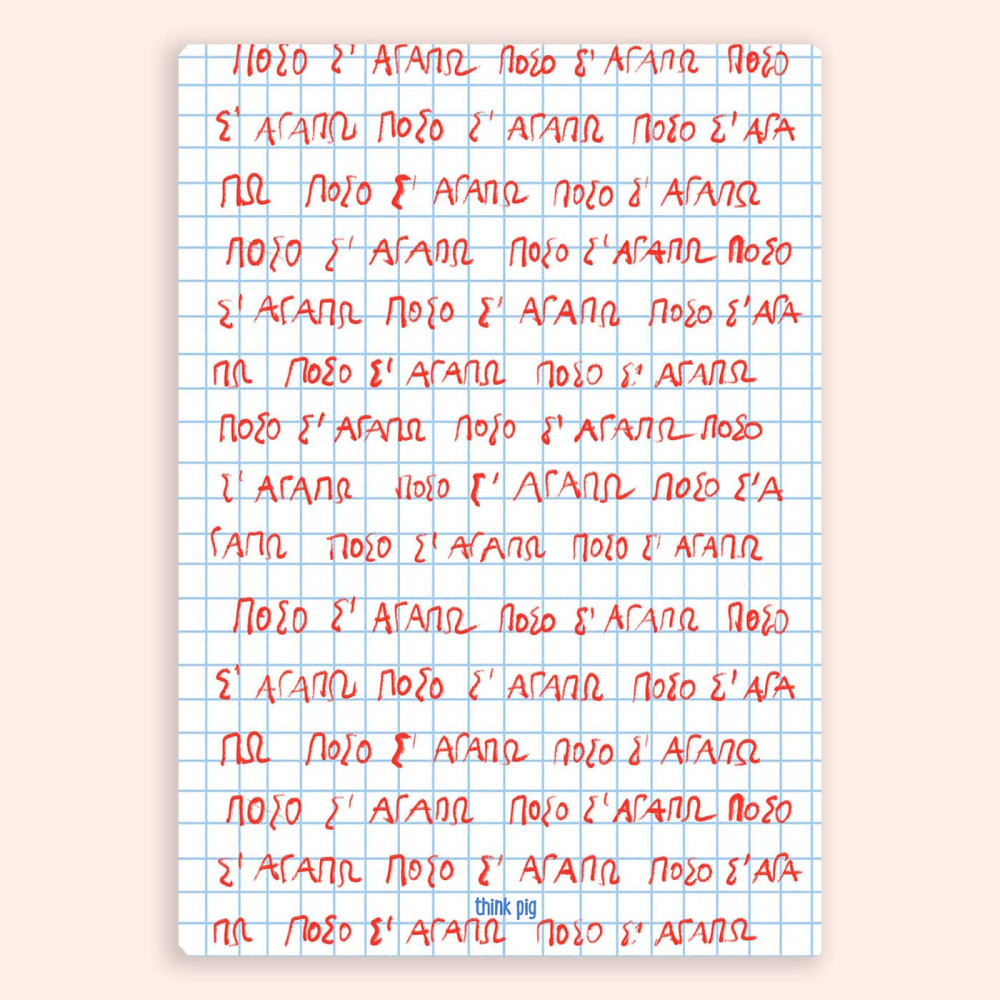 ΠΟΣΟ Σ' ΑΓΑΠΩ ΠΟΣΟ Σ' ΑΓΑΠΩ ΠΟΣΟ
Σ' ΑΓΑΠΩ ΠΟΣΟ Σ' ΑΓΑΠΩ ΠΟΣΟ Σ' ΑΓΑ
ΠΩ ΠΟΣΟ Σ' ΑΓΑΠΩ ΠΟΣΟ Σ' ΑΓΑΠΩ
ΠΟΣΟ Σ' ΑΓΑΠΩ ΠΟΣΟ Σ' ΑΓΑΠΩ ΠΟΣΟ
Σ' ΑΓΑΠΩ ΠΟΣΟ Σ' ΑΓΑΠΩ ΠΟΣΟ Σ' ΑΓΑ
ΠΩ ΠΟΣΟ Σ' ΑΓΑΠΩ ΠΟΣΟ Σ' ΑΓΑΠΩ
ΠΟΣΟ Σ' ΑΓΑΠΩ ΠΟΣΟ Σ' ΑΓΑΠΩ ΠΟΣΟ
Σ' ΑΓΑΠΩ ΠΟΣΟ Σ' ΑΓΑΠΩ ΠΟΣΟ Σ' Α
ΓΑΠΩ ΠΟΣΟ Σ' ΑΓΑΠΩ ΠΟΣΟ Σ' ΑΓΑΠΩ
ΠΟΣΟ Σ' ΑΓΑΠΩ ΠΟΣΟ Σ' ΑΓΑΠΩ ΠΟΣΟ
Σ' ΑΓΑΠΩ ΠΟΣΟ Σ' ΑΓΑΠΩ ΠΟΣΟ Σ' ΑΓΑ
ΠΩ ΠΟΣΟ Σ' ΑΓΑΠΩ ΠΟΣΟ Σ' ΑΓΑΠΩ
ΠΟΣΟ Σ' ΑΓΑΠΩ ΠΟΣΟ Σ' ΑΓΑΠΩ ΠΟΣΟ
Σ' ΑΓΑΠΩ ΠΟΣΟ Σ' ΑΓΑΠΩ ΠΟΣΟ Σ' ΑΓΑ
think pig
ΠΩ ΠΟΣΟ Σ' ΑΓΑΠΩ ΠΟΣΟ Σ' ΑΓΑΠΩ